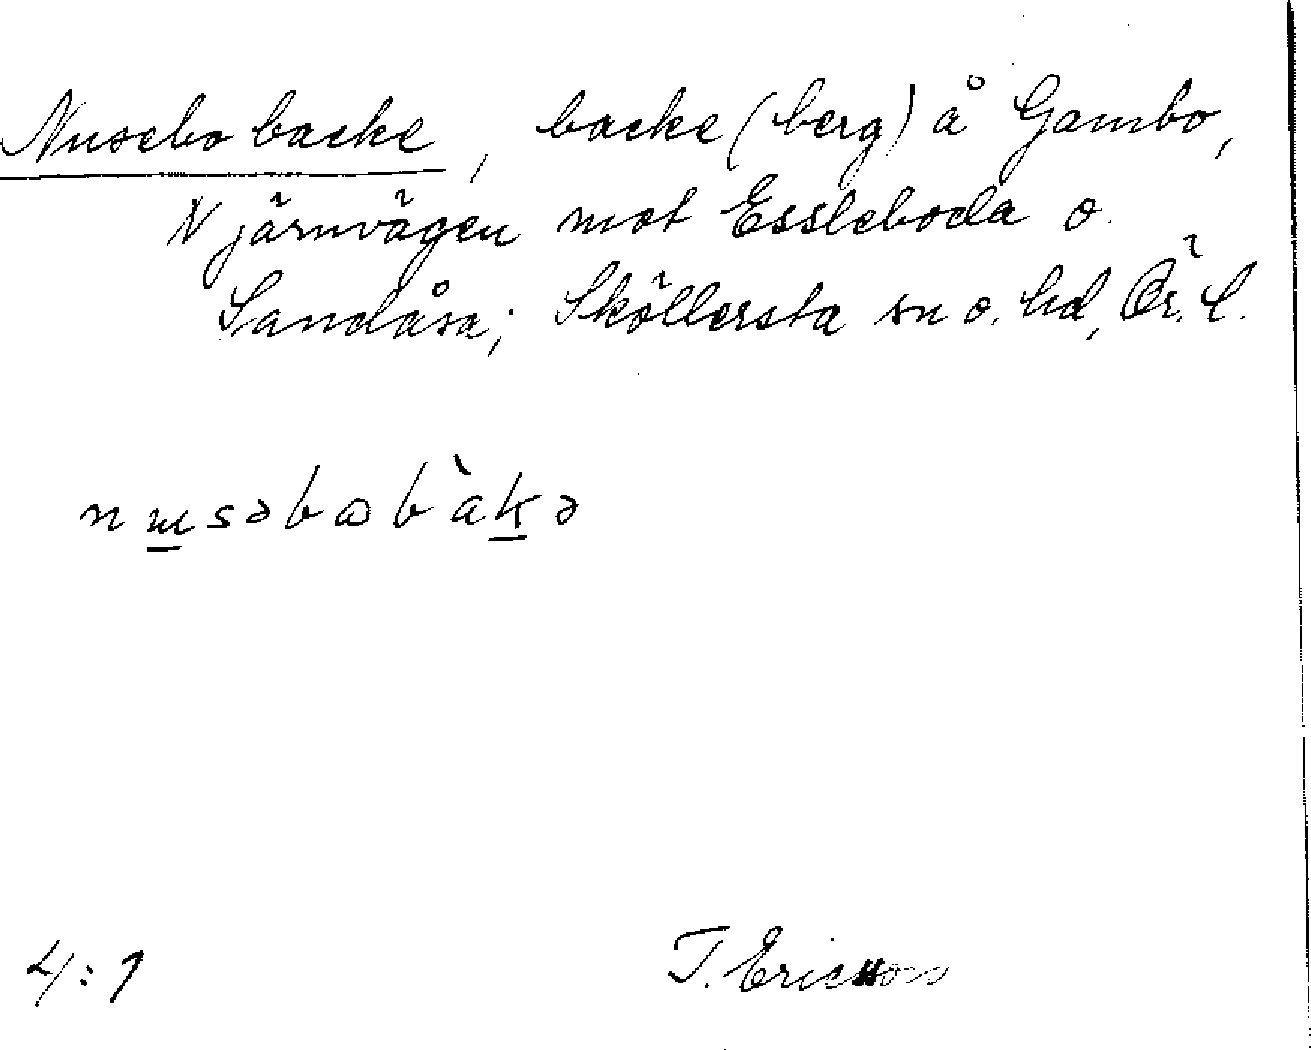 Nusebo backe, backe (berg) å Gambo,
N järnvägen mot Essleboda o.
Sandåsa; Sköllersta sn o. hd, Ör. l.
nɯsəbωbàkə
4:1
T. Ericsson